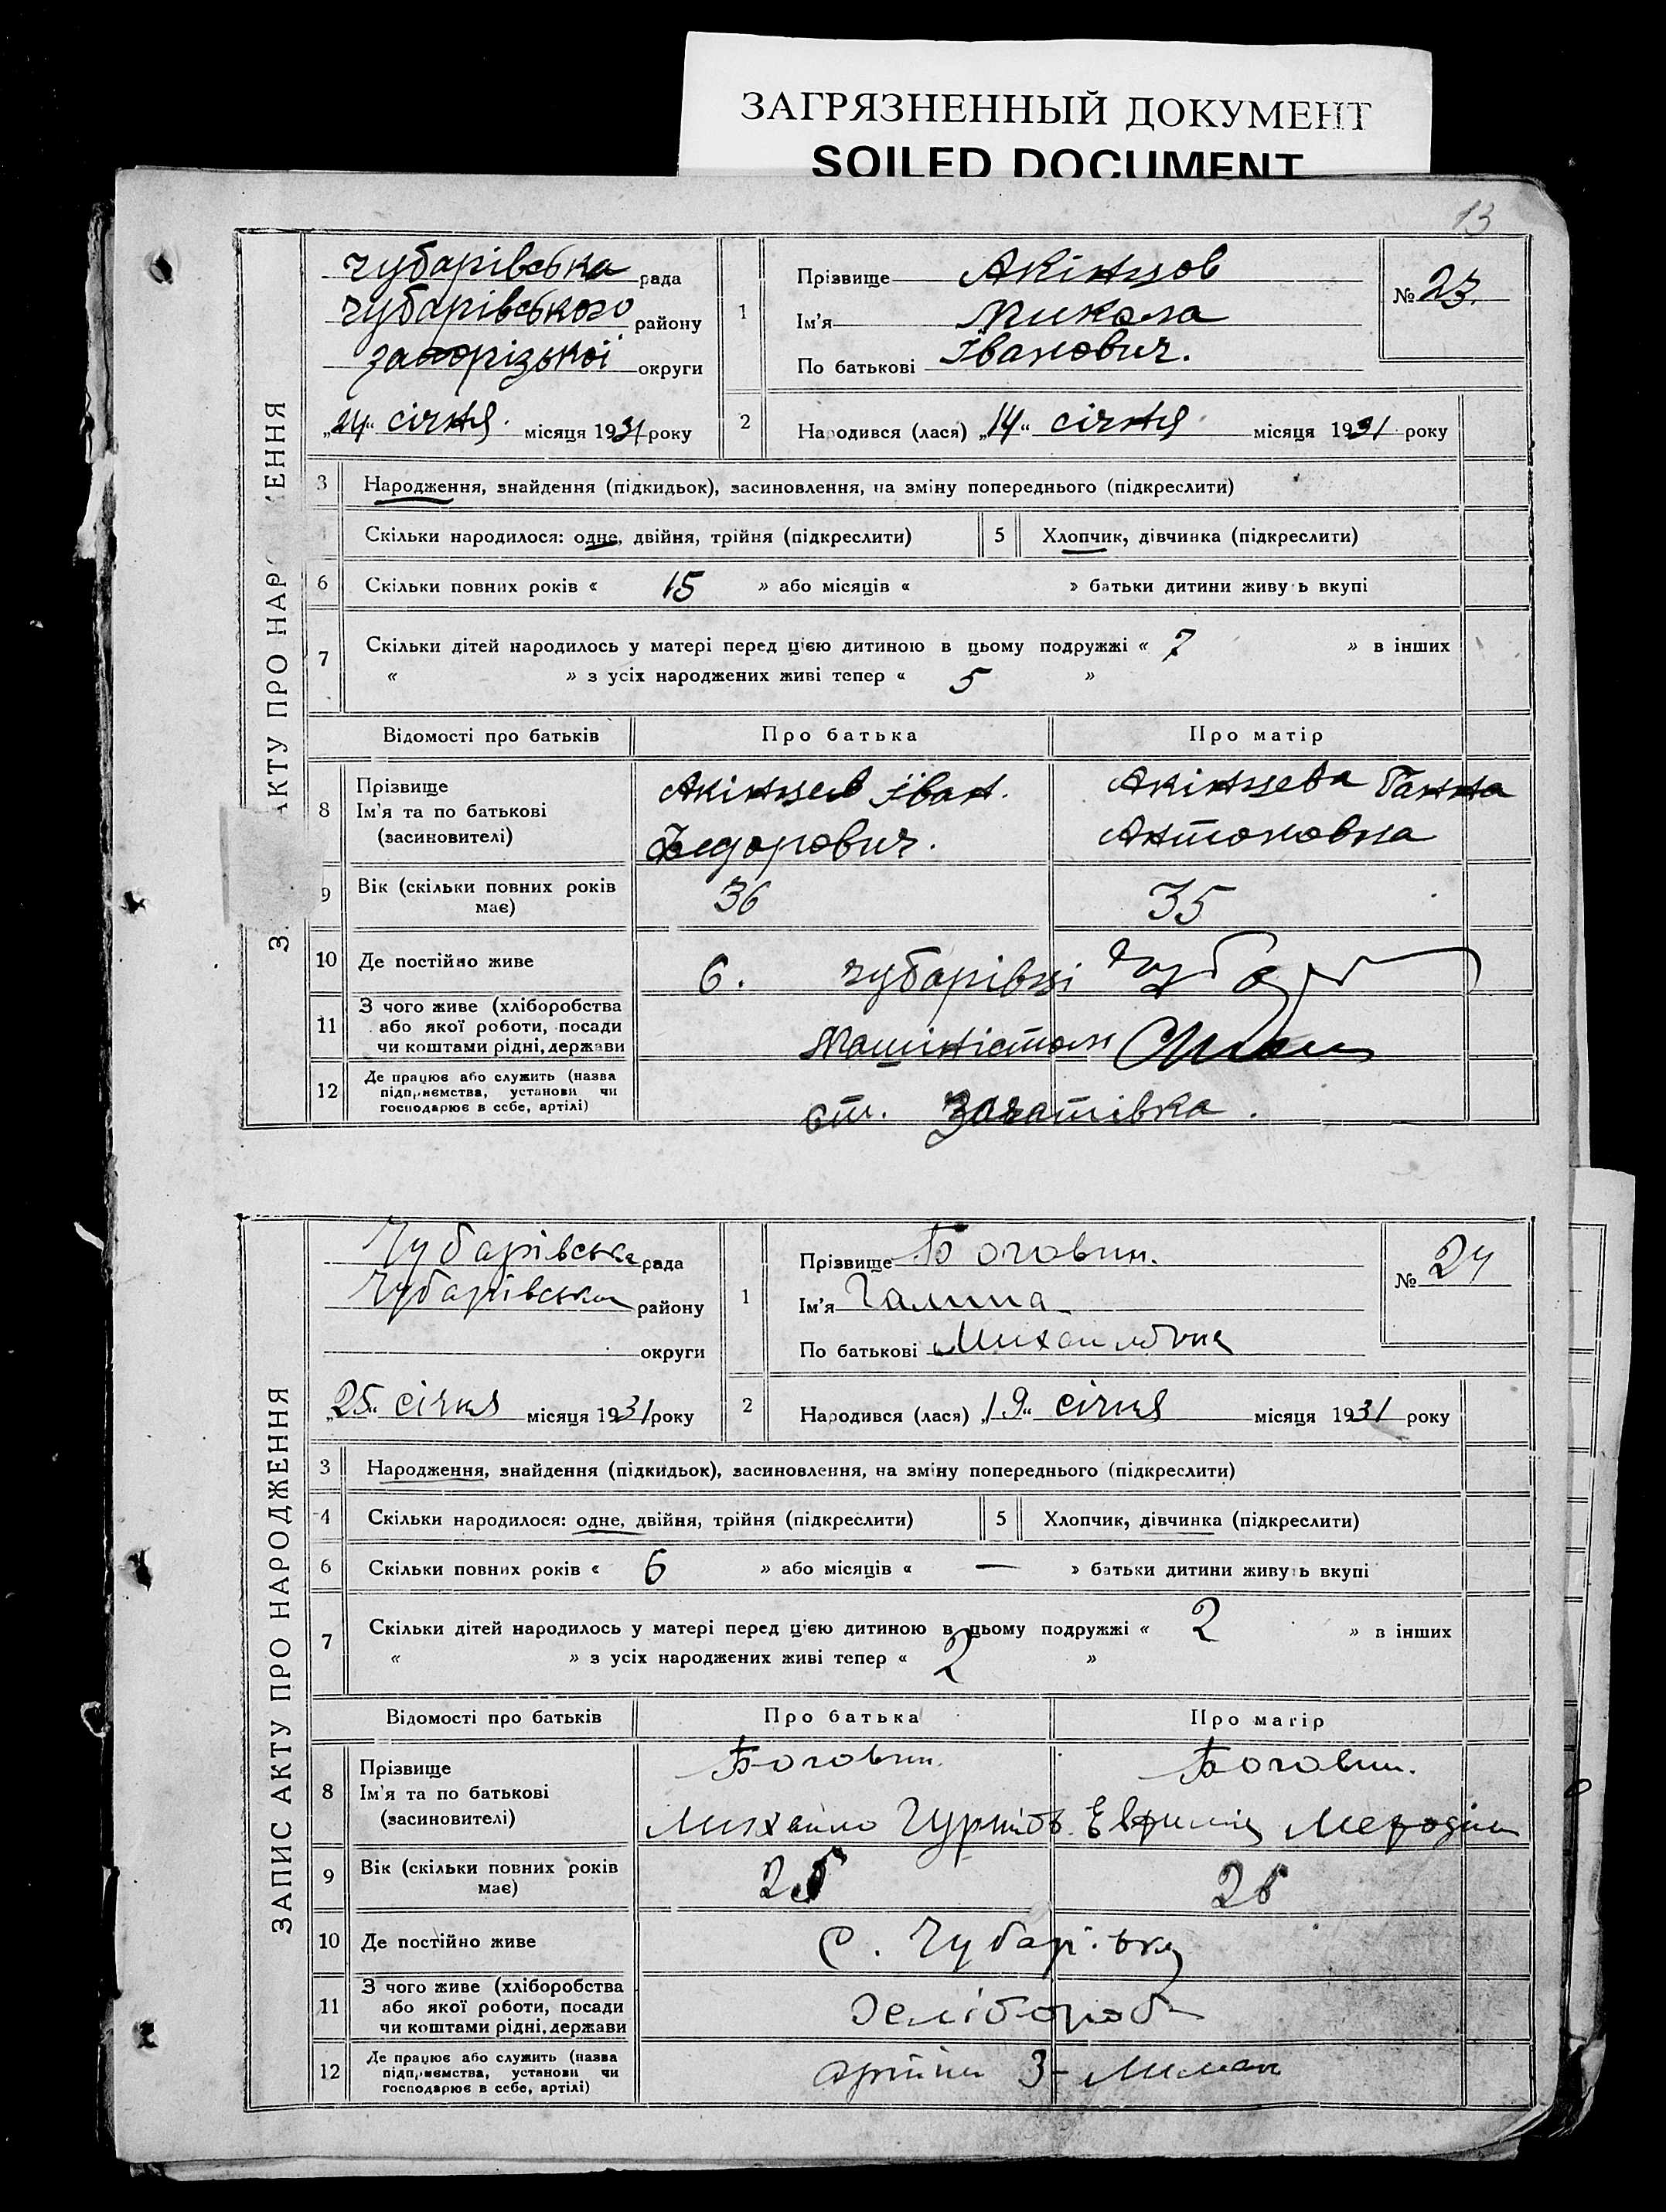 ЗАГРЯЗНЕННЫЙ ДОКУМЕНТ
SOILED DOCUMENT
13
чубарівська рада
чубарівського району
запорізької округи
„24“ січня місяця 1931 року
1
Прізвище Акінцов
Ім'я Микола
По батькові Іванович.
№ 23.
2 Народився (лася) „14“ січня місяця 1931 року
3 Народження, знайдення (підкидьок), засиновлення, на зміну попереднього (підкреслити)
Скільки народилося: одне, двійня, трійня (підкреслити) 5 Хлопчик, дівчинка (підкреслити)
6 Скільки повних років « 15 » або місяців « » батьки дитини живуть вкупі
7 Скільки дітей народилось у матері перед цією дитиною в цьому подружжі « 7 » в інших
« » з усіх народжених живі тепер « 5 »
Відомості про батьків Про батька Про матір
8 Прізвище
Ім'я та по батькові
(засиновителі)
Акінцев Іван.
Федорович.
Акінцева Ганна
Антоновна
9 Вік (скільки повних років має) 36 35
10 Де постійно живе с. чубарівці
11 З чого живе (хліборобства
або якої роботи, посади
чи коштами рідні, держави
Машиністом
12 Де працює або служить (назва
підприємства, установи чи
господарює в себе, артілі)
ст. Зачатівка.
ЗАПИС АКТУ ПРО НАРОДЖЕННЯ
Чубарівська рада
Чубарівськ району
округи
„25“ січня місяця 1931 року
1
Прізвище Боговин.
Ім'я Галина
По батькові Михайловна
№ 24
2 Народився (лася) „19“ січня місяця 1931 року
3 Народження, знайдення (підкидьок), засиновлення, на зміну попереднього (підкреслити)
4 Скільки народилося: одне, двійня, трійня (підкреслити) 5 Хлопчик, дівчинка (підкреслити)
6 Скільки повних років « 6 » або місяців « — » батьки дитини живуть вкупі
7 Скільки дітей народилось у матері перед цією дитиною в цьому подружжі « 2 » в інших
« » з усіх народжених живі тепер « 2 »
Відомості про батьків Про батька Про матір
8 Прізвище
Ім'я та по батькові
(засиновителі)
Боговин.
Михайло
Боговин.
9 Вік (скільки повних років має) 25
10 Де постійно живе с. Чубарівка
11 З чого живе (хліборобства
або якої роботи, посади
чи коштами рідні, держави
12 Де працює або служить (назва
підприємства, установи чи
господарює в себе, артілі)
артіли